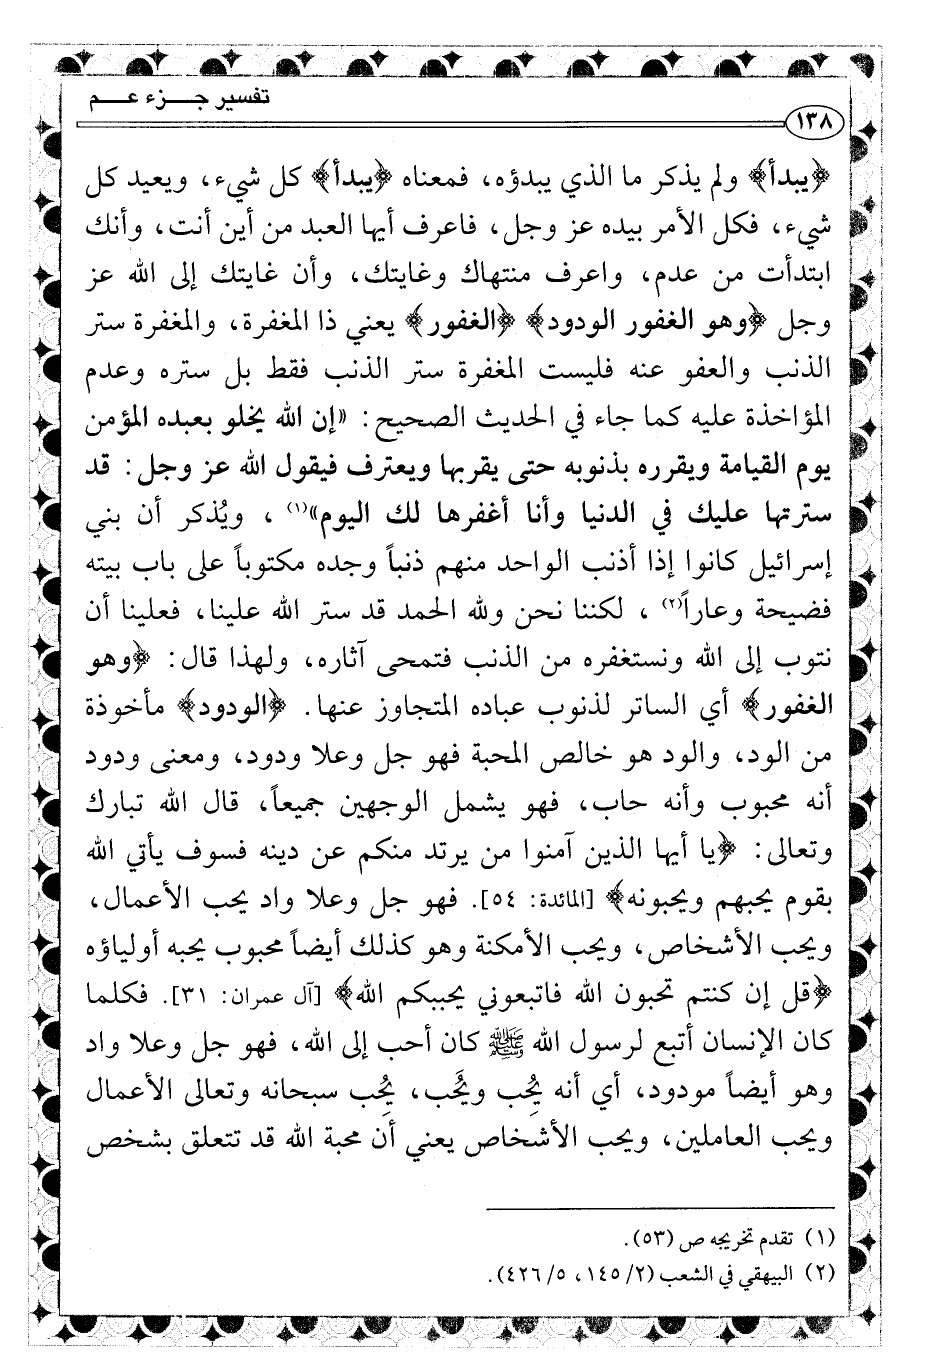 تفسير جـــزء عـــم
١٣٨
﴿يبدأ﴾ ولم يذكر ما الذي يبدؤه، فمعناه ﴿يبدأ﴾ كل شيء، ويعيد كل
شيء، فكل الأمر بيده عز وجل، فاعرف أيها العبد من أين أنت، وأنك
ابتدأت من عدم، واعرف منتهاك وغايتك، وأن غايتك إلى الله عز
وجل ﴿وهو الغفور الودود﴾ ﴿الغفور﴾ يعني ذا المغفرة، والمغفرة ستر
الذنب والعفو عنه فليست المغفرة ستر الذنب فقط بل ستره وعدم
المؤاخذة عليه كما جاء في الحديث الصحيح: «إن الله يخلو بعبده المؤمن
يوم القيامة ويقرره بذنوبه حتى يقربها ويعترف فيقول الله عز وجل: قد
سترتها عليك في الدنيا وأنا أغفرها لك اليوم»(١)، ويُذكر أن بني
إسرائيل كانوا إذا أذنب الواحد منهم ذنباً وجده مكتوباً على باب بيته
فضيحة وعاراً(٢)، لكننا نحن ولله الحمد قد ستر الله علينا، فعلينا أن
نتوب إلى الله ونستغفره من الذنب فتمحى آثاره، ولهذا قال: ﴿وهو
الغفور﴾ أي الساتر لذنوب عباده المتجاوز عنها. ﴿الودود﴾ مأخوذة
من الود، والود هو خالص المحبة فهو جل وعلا ودود، ومعنى ودود
أنه محبوب وأنه حاب، فهو يشمل الوجهين جميعاً، قال الله تبارك
وتعالى: ﴿يا أيها الذين آمنوا من يرتد منكم عن دينه فسوف يأتي الله
بقوم يحبهم ويحبونه﴾ [المائدة: ٥٤]. فهو جل وعلا واد يحب الأعمال،
ويحب الأشخاص، ويحب الأمكنة وهو كذلك أيضاً محبوب يحبه أولياؤه
﴿قل إن كنتم تحبون الله فاتبعوني يحببكم الله﴾ [آل عمران: ٣١]. فكلما
كان الإنسان أتبع لرسول الله ﷺ كان أحب إلى الله، فهو جل وعلا واد
وهو أيضاً مودود، أي أنه يُحِب ويُحَب، يُحِب سبحانه وتعالى الأعمال
ويحب العاملين، ويحب الأشخاص يعني أن محبة الله قد تتعلق بشخص
(١) تقدم تخريجه ص (٥٣).
(٢) البيهقي في الشعب (٢/ ١٤٥، ٥/ ٤٢٦).